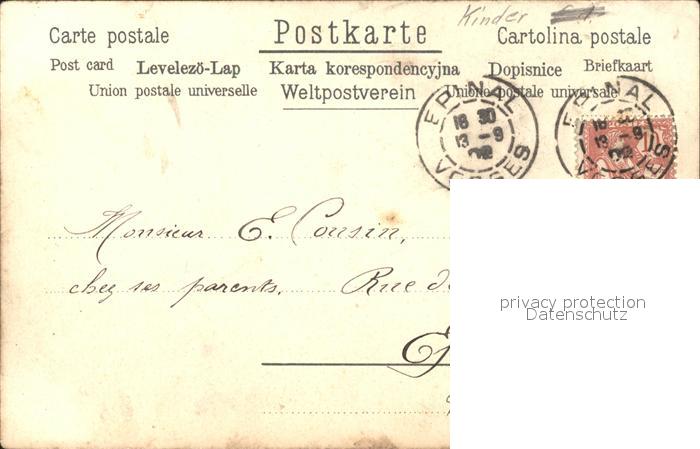 Kinder
Carte postale Postkarte Cartolina postale
Post card Levelezö-Lap Karta korespondencyjna Dopisnice Briefkaart
Union postale universelle Weltpostverein Unione postale universale
EPINAL
18 30
13 - 9
02
VOSGES
EPINAL
18 30
13 - 9
02
VOSGES
Monsieur E. Cousin,
chez ses parents. Rue de
privacy protection
Datenschutz